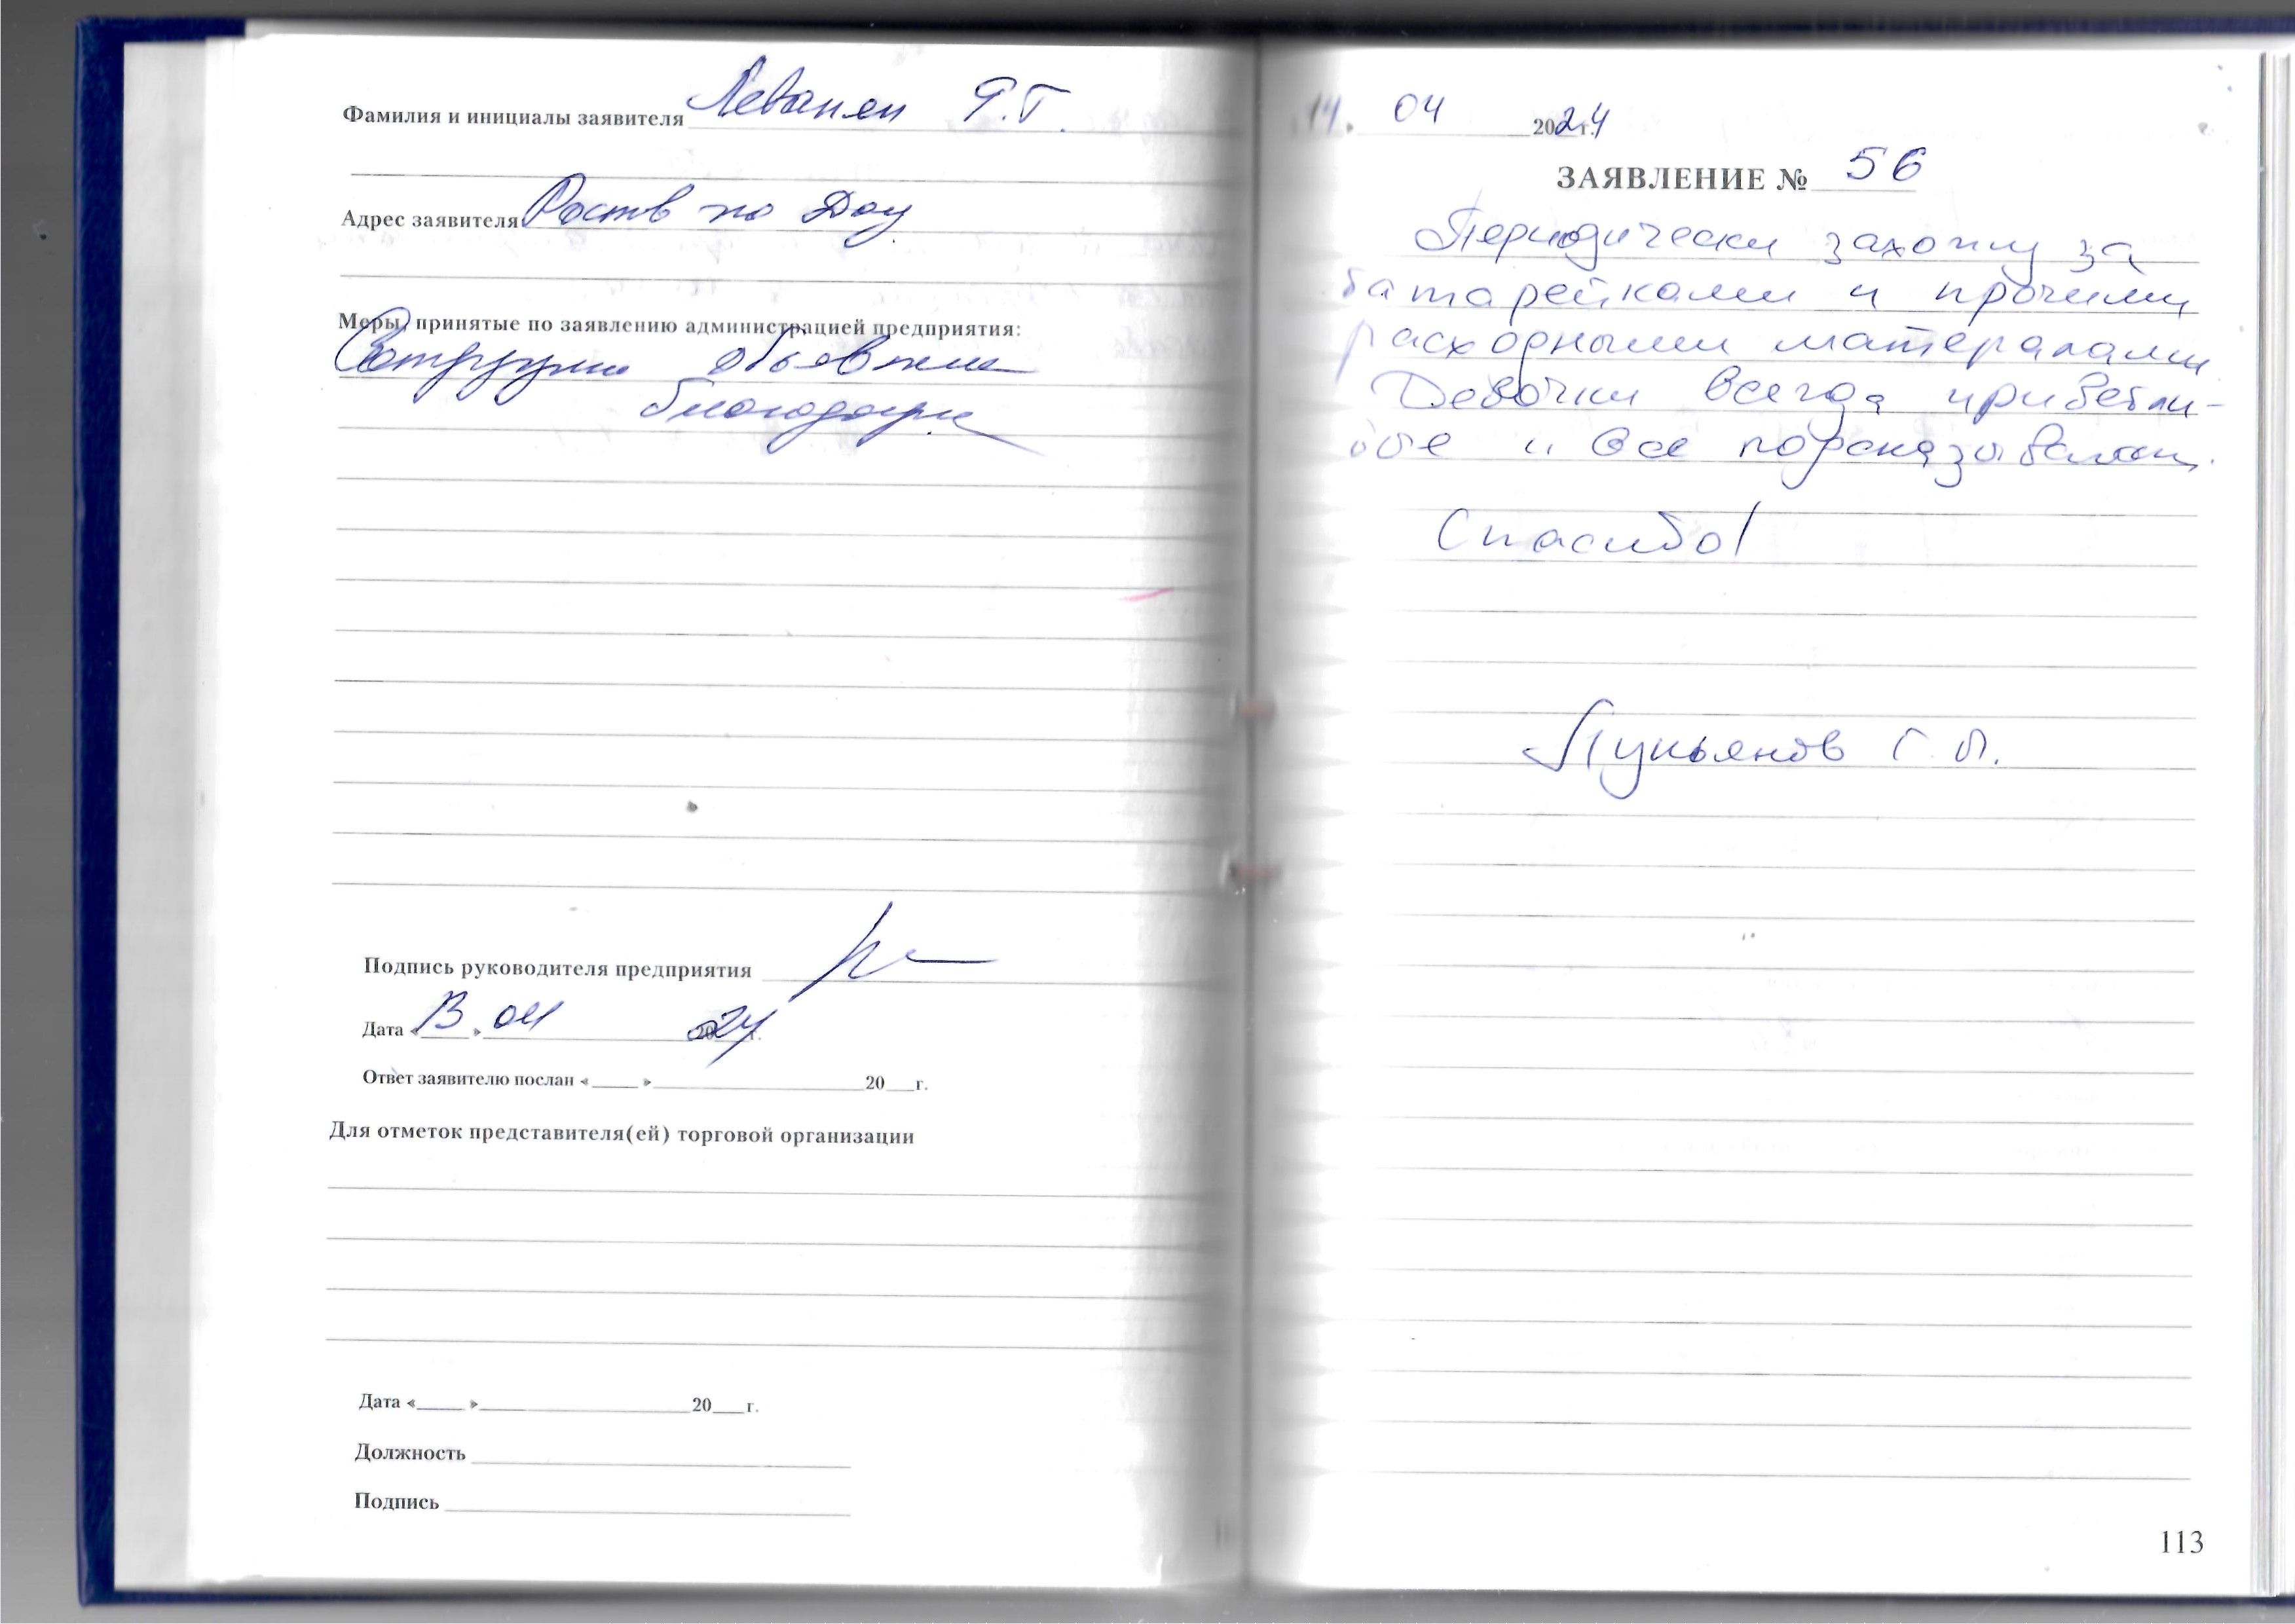 Фамилия и инициалы заявителя Леванян Г.Г.
Адрес заявителя Роств по Дону
Меры, принятые по заявлению администрацией предприятия:
объявлена
Подпись руководителя предприятия
Дата « » 04 2024 г.
Ответ заявителю послан « » 20 г.
Для отметок представителя(ей) торговой организации
Дата « » 20 г.
Должность
Подпись
14. 04 2024 г.
ЗАЯВЛЕНИЕ № 56
Периодически захожу за
батарейками и прочими
расходными матералами
Девочки всегда приветли-
вые и все подсказывают.
Спасибо!
Лукьянов Г. П.
113